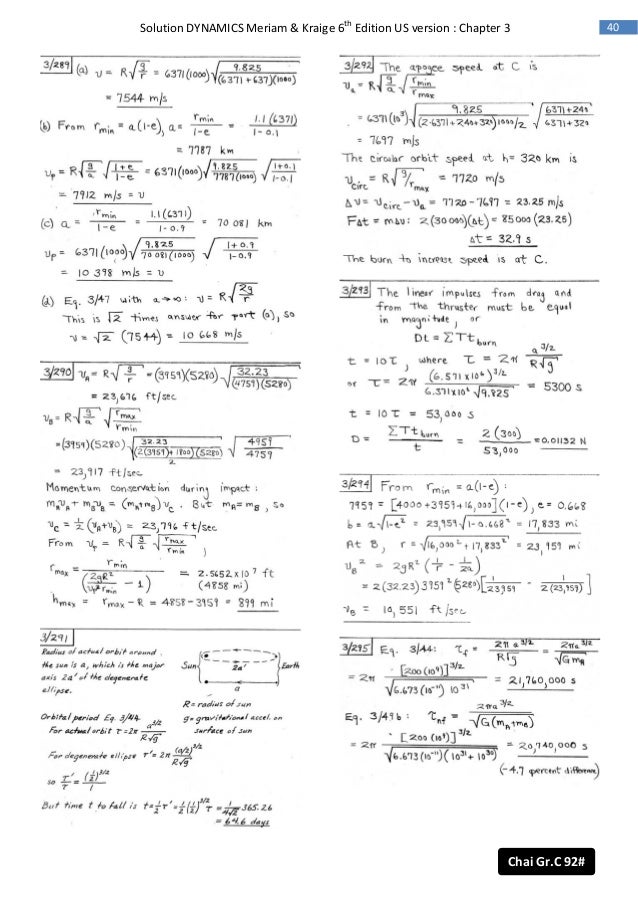 Solution DYNAMICS Meriam & Kraige 6th Edition US version : Chapter 3
40
3/289 (a) v = R√(g/r) = 6371(1000) √(9.825/((6371+637)(1000)))
= 7544 m/s
(b) From r_min = a(1-e), a = r_min/(1-e) = 1.1(6371)/(1-0.1)
= 7787 km
v_P = R√(g/a) √((1+e)/(1-e)) = 6371(1000) √(9.825/(7787(1000))) √((1+0.1)/(1-0.1))
= 7912 m/s = v
(c) a = r_min/(1-e) = 1.1(6371)/(1-0.9) = 70 081 km
v_P = 6371(1000) √(9.825/(70 081(1000))) √((1+0.9)/(1-0.9))
= 10 398 m/s = v
(d) Eq. 3/47 with a→∞: v = R√(2g/r)
This is √2 times answer for part (a), so
v = √2 (7544) = 10 668 m/s
3/290 v_A = R√(g/r) = (3959)(5280) √(32.23/((4759)(5280)))
= 23,676 ft/sec
v_B = R√(g/a) √(r_max/r_min)
= (3959)(5280) √(32.23/((2(3959)+1800)(5280)/2)) √(4959/4759)
= 23,917 ft/sec
Momentum conservation during impact :
m_A v_A + m_B v_B = (m_A+m_B) v_C. But m_A = m_B, so
v_C = ½ (v_A+v_B) = 23,796 ft/sec
From v_P = R√(g/a) √(r_max/r_min) ,
r_max = r_min/(2gR²/(v_P² r_min) - 1) = 2.5652 x 10⁷ ft
(4858 mi)
h_max = r_max - R = 4858-3959 = 899 mi
3/291
Radius of actual orbit around
the sun is a, which is the major
axis 2a' of the degenerate
ellipse.
Sun
2a'
Earth
a
R = radius of sun
g = gravitational accel. on
surface of sun
Orbital period Eq. 3/44.
For actual orbit τ = 2π a^(3/2)/(R√g)
For degenerate ellipse τ' = 2π (a/2)^(3/2)/(R√g)
so τ'/τ = (½)^(3/2)/1
But time t to fall is t = ½τ' = ½(½)^(3/2) τ = 1/(4√2) 365.26
= 64.6 days
3/292 The apogee speed at C is
v_a = R√(g/a) √(r_min/r_max)
= 6371(10³) √(9.825/((2·6371+240+320)1000/2)) √((6371+240)/(6371+320))
= 7697 m/s
The circular orbit speed at h = 320 km is
v_circ = R√(g/r_max) = 7720 m/s
Δv = v_circ - v_a = 7720-7697 = 23.25 m/s
FΔt = mΔv: 2(30 000)(Δt) = 85000 (23.25)
Δt = 32.9 s
The burn to increase speed is at C.
3/293 The linear impulses from drag and
from the thruster must be equal
in magnitude, or
Dt = ΣTt_burn
t = 10τ, where τ = 2π a^(3/2)/(R√g)
or τ = 2π (6.571 x 10⁶)^(3/2)/(6.371x10⁶ √9.825) = 5300 s
t = 10τ = 53,000 s
D = ΣTt_burn/t = 2(300)/53,000 = 0.01132 N
3/294 From r_min = a(1-e) :
7959 = [4000+3959+16,000](1-e), e = 0.668
b = a√(1-e²) = 23,959√(1-0.668²) = 17,833 mi
At B, r = √(16,000²+17,833²) = 23,959 mi
v_B² = 2gR² (1/r - 1/2a)
= 2(32.23) 3959² (5280)[1/23959 - 1/(2(23,959))]
v_B = 10,551 ft/sec
3/295 Eq. 3/44: τ_f = 2π a^(3/2)/(R√g) = 2πa^(3/2)/√(Gm_A)
= 2π [200(10⁹)]^(3/2)/√(6.673(10⁻¹¹) 10³¹) = 21,760,000 s
Eq. 3/49b : τ_nf = 2πa^(3/2)/√(G(m_A+m_B))
= 2π [200(10⁹)]^(3/2)/√(6.673(10⁻¹¹)(10³¹+10³⁰)) = 20,740,000 s
(-4.7 percent difference)
Chai Gr.C 92#